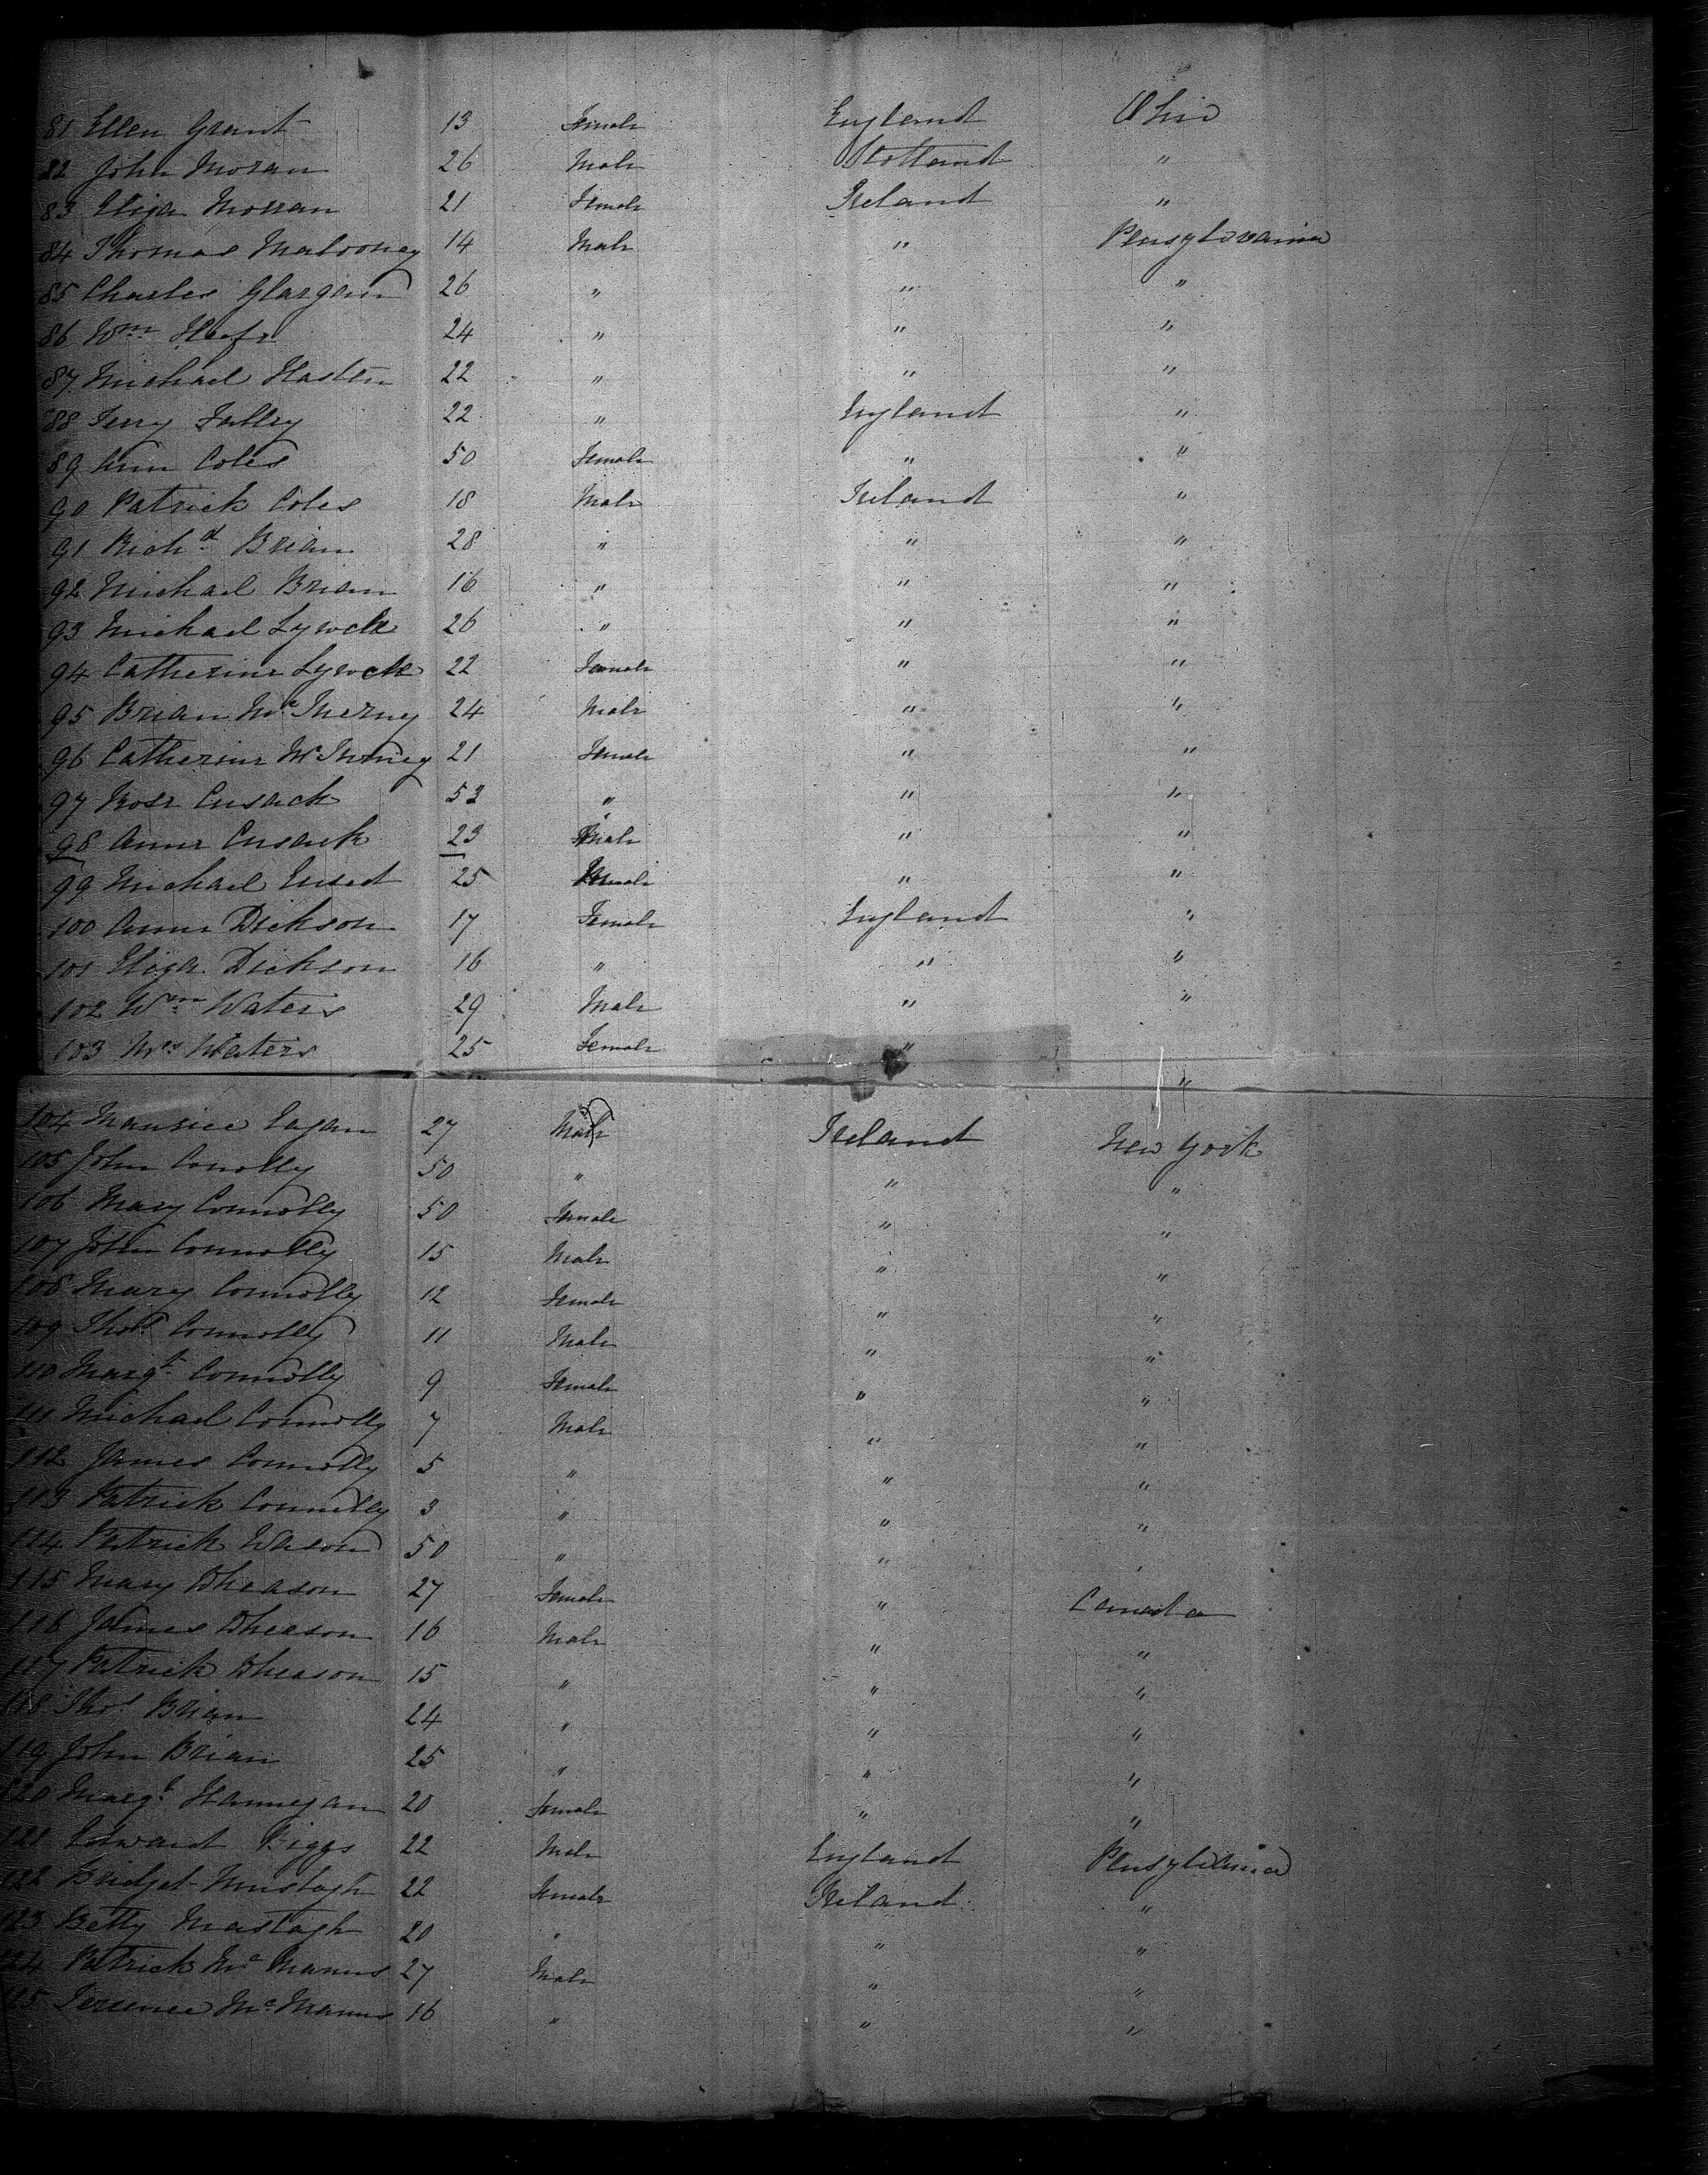 81 Ellen Grant 13 Female England Ohio
82 John Moran 26 Male Scotland "
83 Eliza Morran 21 Female Ireland "
84 Thomas Malooney 14 Male " Pensylovania
85 Charles Glargan 26 " " "
86 Wm 24 " " "
87 Michael Hasten 22 " " "
88 Terry Falley 22 " England "
89 Ann Coles 50 Female " "
90 Patrick Coles 18 Male Ireland "
91 Richd Brian 28 " " "
92 Michael Brian 16 " " "
93 Michael Lywch 26 " " "
94 Catherine Lywch 22 Female " "
95 Brian Mc Inerney 24 Male " "
96 Catherine Mc 21 Female " "
97 Rose Cusack 53 " " "
98 Anne Cusack 23 " "
99 Michael 25 " "
100 Anne Dickson 17 Female England "
101 Eliza Dickson 16 " " "
102 Wm Waters 29 Male " "
103 Mrs Waters 25 Female " "
104 Maurice Eagan 27 Male Ireland New York
105 John Conolly 50 " " "
106 Mary Connolly 50 Female " "
107 John Connolly 15 Male " "
108 Mary Connolly 12 Female " "
109 Thos Connolly 11 Male " "
110 Margt Connolly 9 Female " "
111 Michael Connolly 7 Male " "
112 James Connolly 5 " " "
113 Patrick Connolly 3 " " "
114 Patrick Wason 50 " " "
115 Mary 27 Female " Canada
116 James 16 Male " "
117 Patrick 15 " " "
118 Thos Brian 24 " " "
119 John Brian 25 " " "
120 Margt Hannegan 20 Female " "
121 Edward Riggs 22 Male England Pensylvania
122 Bridget Murtagh 22 Female Ireland "
123 Betty Murtagh 20 " " "
124 Patrick Mc Manus 27 Male " "
125 Terrence Mc Manus 16 " " "